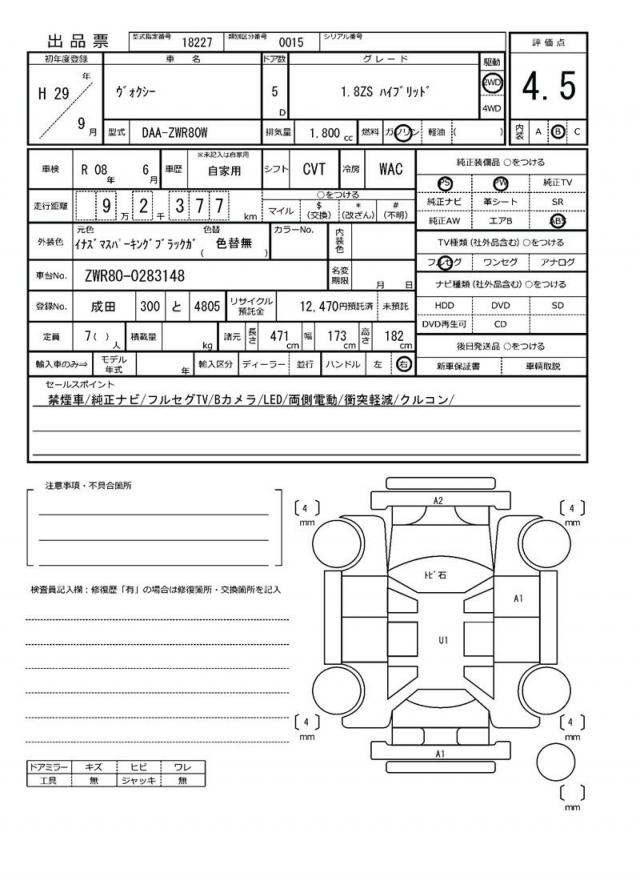 出品票 型式指定番号 18227 類別区分番号 0015 シリアル番号
評価点
4.5
内装 A B C
初年度登録 車名 ドア数 グレード 駆動
H 29 年 9 月 ヴォクシー 5 D 1.8ZS ハイブリッド 2WD 4WD
型式 DAA-ZWR80W 排気量 1,800 cc 燃料 ガソリン 軽油 ( )
車検 R 08 年 6 月 車歴 ※未記入は自家用 自家用 シフト CVT 冷房 WAC
走行距離 9 万 2 千 3 7 7 km ○をつける
マイル $ (交換) * (改ざん) # (不明)
外装色 元色 イナズマスパーキングブラックガ 色替 ( 色替無 ) カラーNo. 内装色
車台No. ZWR80-0283148 名変期限 月 日
登録No. 成田 300 と 4805 リサイクル預託金 12,470円預託済 未預託
定員 7( ) 人 積載量 kg 諸元 長さ 471 cm 幅 173 cm 高さ 182 cm
輸入車のみ⇒ モデル年式 年 輸入区分 ディーラー 並行 ハンドル 左 右
純正装備品 ○をつける
PS PW 純正TV
純正ナビ 革シート SR
純正AW エアB ABS
TV種類(社外品含む) ○をつける
フルセグ ワンセグ アナログ
ナビ種類(社外品含む) ○をつける
HDD DVD SD
DVD再生可 CD
後日発送品 ○をつける
新車保証書 車輌取説
セールスポイント
禁煙車/純正ナビ/フルセグTV/Bカメラ/LED/両側電動/衝突軽減/クルコン/
注意事項・不具合箇所
検査員記入欄：修復歴「有」の場合は修復箇所・交換箇所を記入
ドアミラー キズ ヒビ ワレ
工具 無 ジャッキ 無
[ 4 ] mm
A2
[ 4 ] mm
トビ石
A1
U1
[ 4 ] mm
A1
[ 4 ] mm
[ ] mm